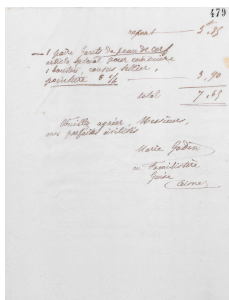 479
report — 3.85
1 paire gants de peau de cerf
article spécial pour
1 bouton, cousus sellier,
pointure 8 ¼ — 3,90
total 7.65
Veuillez agréer, Messieurs,
mes parfaites civilités
Marie Godin
au Familistère
Guise
Aisne